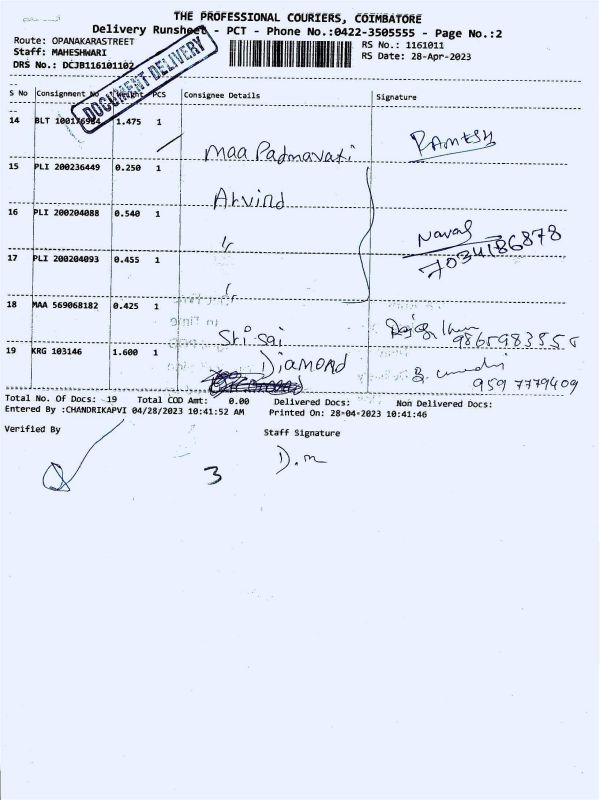 THE PROFESSIONAL COURIERS, COIMBATORE
Delivery Runsheet - PCT - Phone No.:0422-3505555 - Page No.:2
Route: OPANAKARASTREET
RS No.: 1161011
Staff: MAHESHWARI
RS Date: 28-Apr-2023
DRS No.: DCJB116101102
DOCUMENT DELIVERY
S No Consignment No Weight PCS Consignee Details Signature
14 BLT 100176984 1.475 1
Maa Padmavati
RAMESH
15 PLI 200236449 0.250 1
Arvind
16 PLI 200204088 0.540 1
"
Naval
7034186878
17 PLI 200204093 0.455 1
"
18 MAA 569068182 0.425 1
Sri sai
9865983555
19 KRG 103146 1.600 1
Diamond
9597779409
Total No. Of Docs: 19 Total COD Amt: 0.00 Delivered Docs: Non Delivered Docs:
Entered By :CHANDRIKAPVI 04/28/2023 10:41:52 AM Printed On: 28-04-2023 10:41:46
Verified By
Staff Signature
D.m
3